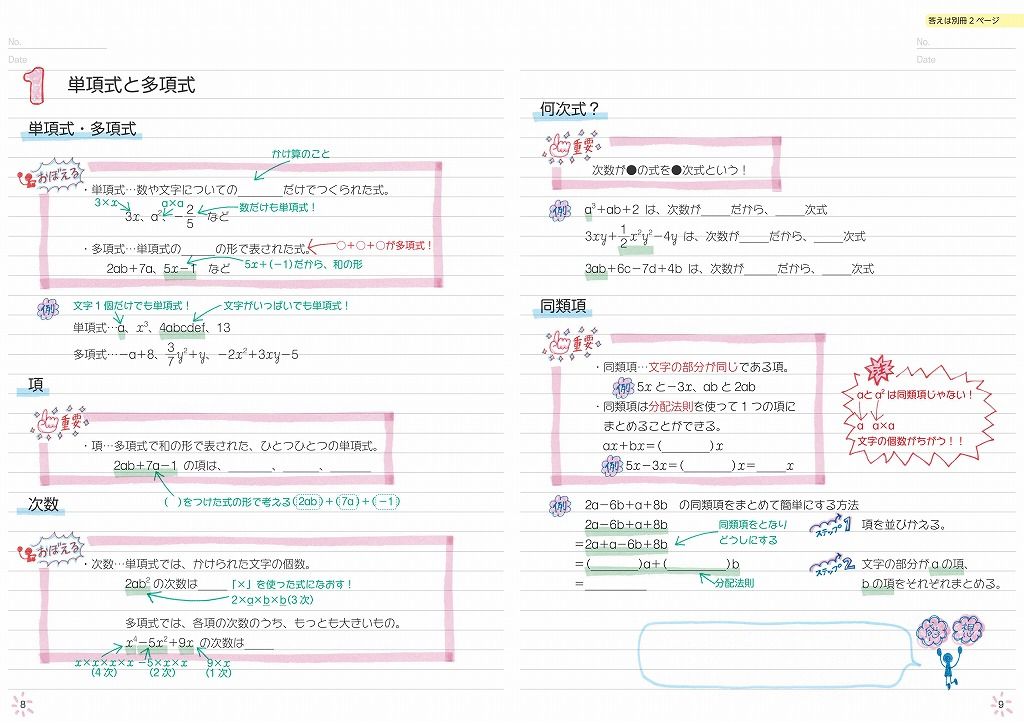 No.
Date
1 単項式と多項式
単項式・多項式
おぼえる
かけ算のこと
・単項式…数や文字についての______だけでつくられた式。
3×x
a×a
3x、a²、−2/5 など
数だけも単項式！
・多項式…単項式の_____の形で表された式。
○+○+○が多項式！
2ab+7a、5x−1 など
5x+(−1)だから、和の形
例
文字1個だけでも単項式！
文字がいっぱいでも単項式！
単項式…a、x³、4abcdef、13
多項式…−a+8、3/7y²+y、−2x²+3xy−5
項
重要
・項…多項式で和の形で表された、ひとつひとつの単項式。
2ab+7a−1 の項は、______、______、______
( )をつけた式の形で考える(2ab)+(7a)+(−1)
次数
おぼえる
・次数…単項式では、かけられた文字の個数。
2ab²の次数は______
「×」を使った式になおす！
2×a×b×b(3次)
多項式では、各項の次数のうち、もっとも大きいもの。
x⁴−5x²+9x の次数は_____
x×x×x×x
(4次)
−5×x×x
(2次)
9×x
(1次)
8
答えは別冊2ページ
No.
Date
何次式？
重要
次数が●の式を●次式という！
例
a³+ab+2 は、次数が_____だから、_____次式
3xy+1/2x²y²−4y は、次数が_____だから、_____次式
3ab+6c−7d+4b は、次数が_____だから、_____次式
同類項
重要
・同類項…文字の部分が同じである項。
例 5xと−3x、abと2ab
・同類項は分配法則を使って1つの項に
まとめることができる。
ax+bx=(________)x
例 5x−3x=(________)x=_____x
注意
aとa²は同類項じゃない！
a a×a
文字の個数がちがう！！
例
2a−6b+a+8b の同類項をまとめて簡単にする方法
2a−6b+a+8b
=2a+a−6b+8b
同類項をとなり
どうしにする
=(________)a+(________)b
分配法則
=__________
ステップ1 項を並びかえる。
ステップ2 文字の部分がaの項、
bの項をそれぞれまとめる。
感想
9